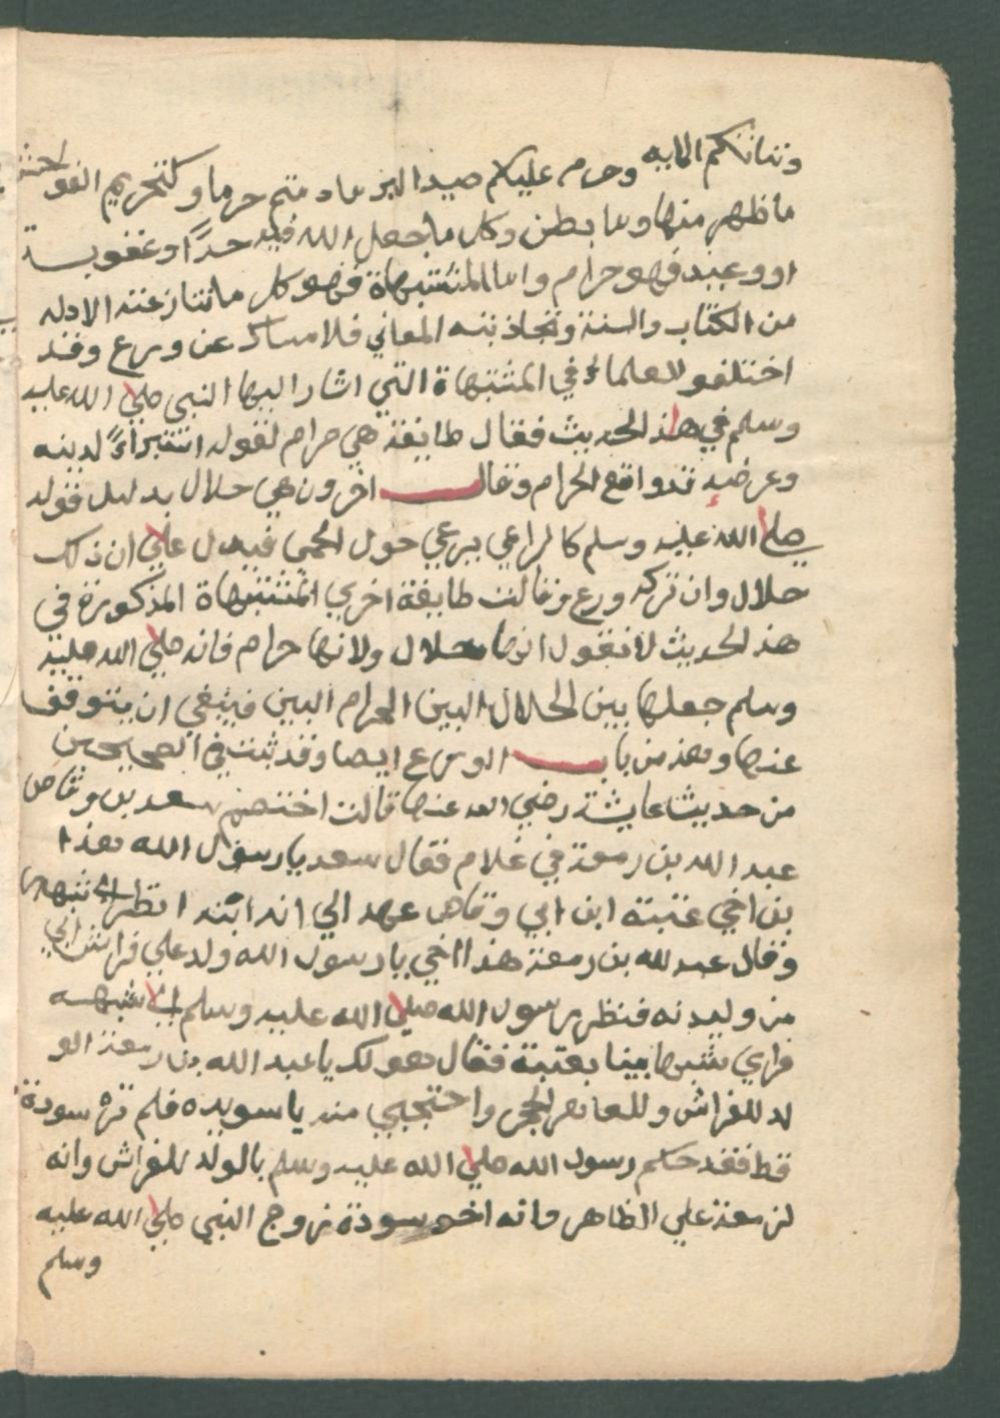 وبناتكم الايه وحرم عليكم صيد البر ما دمتم حرما وكتحريم الفواحش
ما ظهر منها وما بطن وكل ما جعل الله فيه حدًا وعقوبة
او وعيد فهو حرام واما المشتبهاة فهو كل ما تنازعته الادله
من الكتاب والسنة وتجاذبته المعاني فلامساك عن ورع وقد
اختلفو العلماء في المشتبهاة التي اشار اليها النبي صلي الله عليه
وسلم في هذا الحديث فقال طايفة هي حرام لقوله استبراءً لدينه
وعرضه قد واقع الحرام وقال اخرون هي حلال بدليل قوله
صلي الله عليه وسلم كالراعي يرعي حول الحمي فيدل علي ان ذلك
حلال وان تركه ورع وقالت طايفة اخري المشتبهاة المذكورة في
هذ الحديث لا نقول انها حلال ولانها حرام فانه صلي الله عليه
وسلم جعلها بين الحلال البين الحرام البين فينبغي ان يتوقف
عنها وهذ من باب الورع ايضا وقد ثبت في الصحيحين
من حديث عايشة رضي الله عنها قالت اختصم سعد بن وقاص
عبد الله بن رمعة في غلام فقال سعد يا رسول الله هذا
بن اخي عتبة ابن ابي وقاص عهد الي انه ابنه انظر الي شبهه
وقال عبد لله بن رمعة هذا اخي يا رسول الله ولد علي فراش ابي
من وليدته فنظر رسول الله صلي الله عليه وسلم الي شبهه
فراي شبها بينا بعتبة فقال هو لك يا عبد الله بن رمعة الو
لد للفراش وللعاهر الحجر واحتجبي منه يا سويده فلم تره سودة
قط فقد حكم رسول الله صلي الله عليه وسلم بالولد للفراش وانه
لزمعة علي الظاهر وانه اخو سودة زوج النبي صلي الله عليه
وسلم